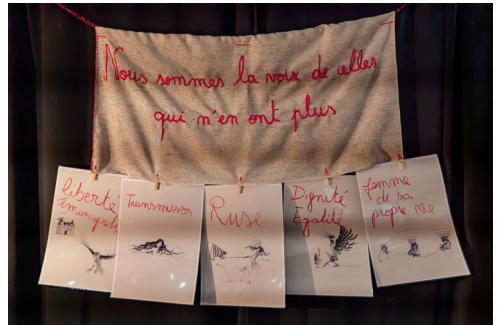 Nous sommes la voix de celles
qui n'en ont plus
liberté
émancipation
Transmission
Ruse
Dignité
Egalité
femme
de sa
propre vie